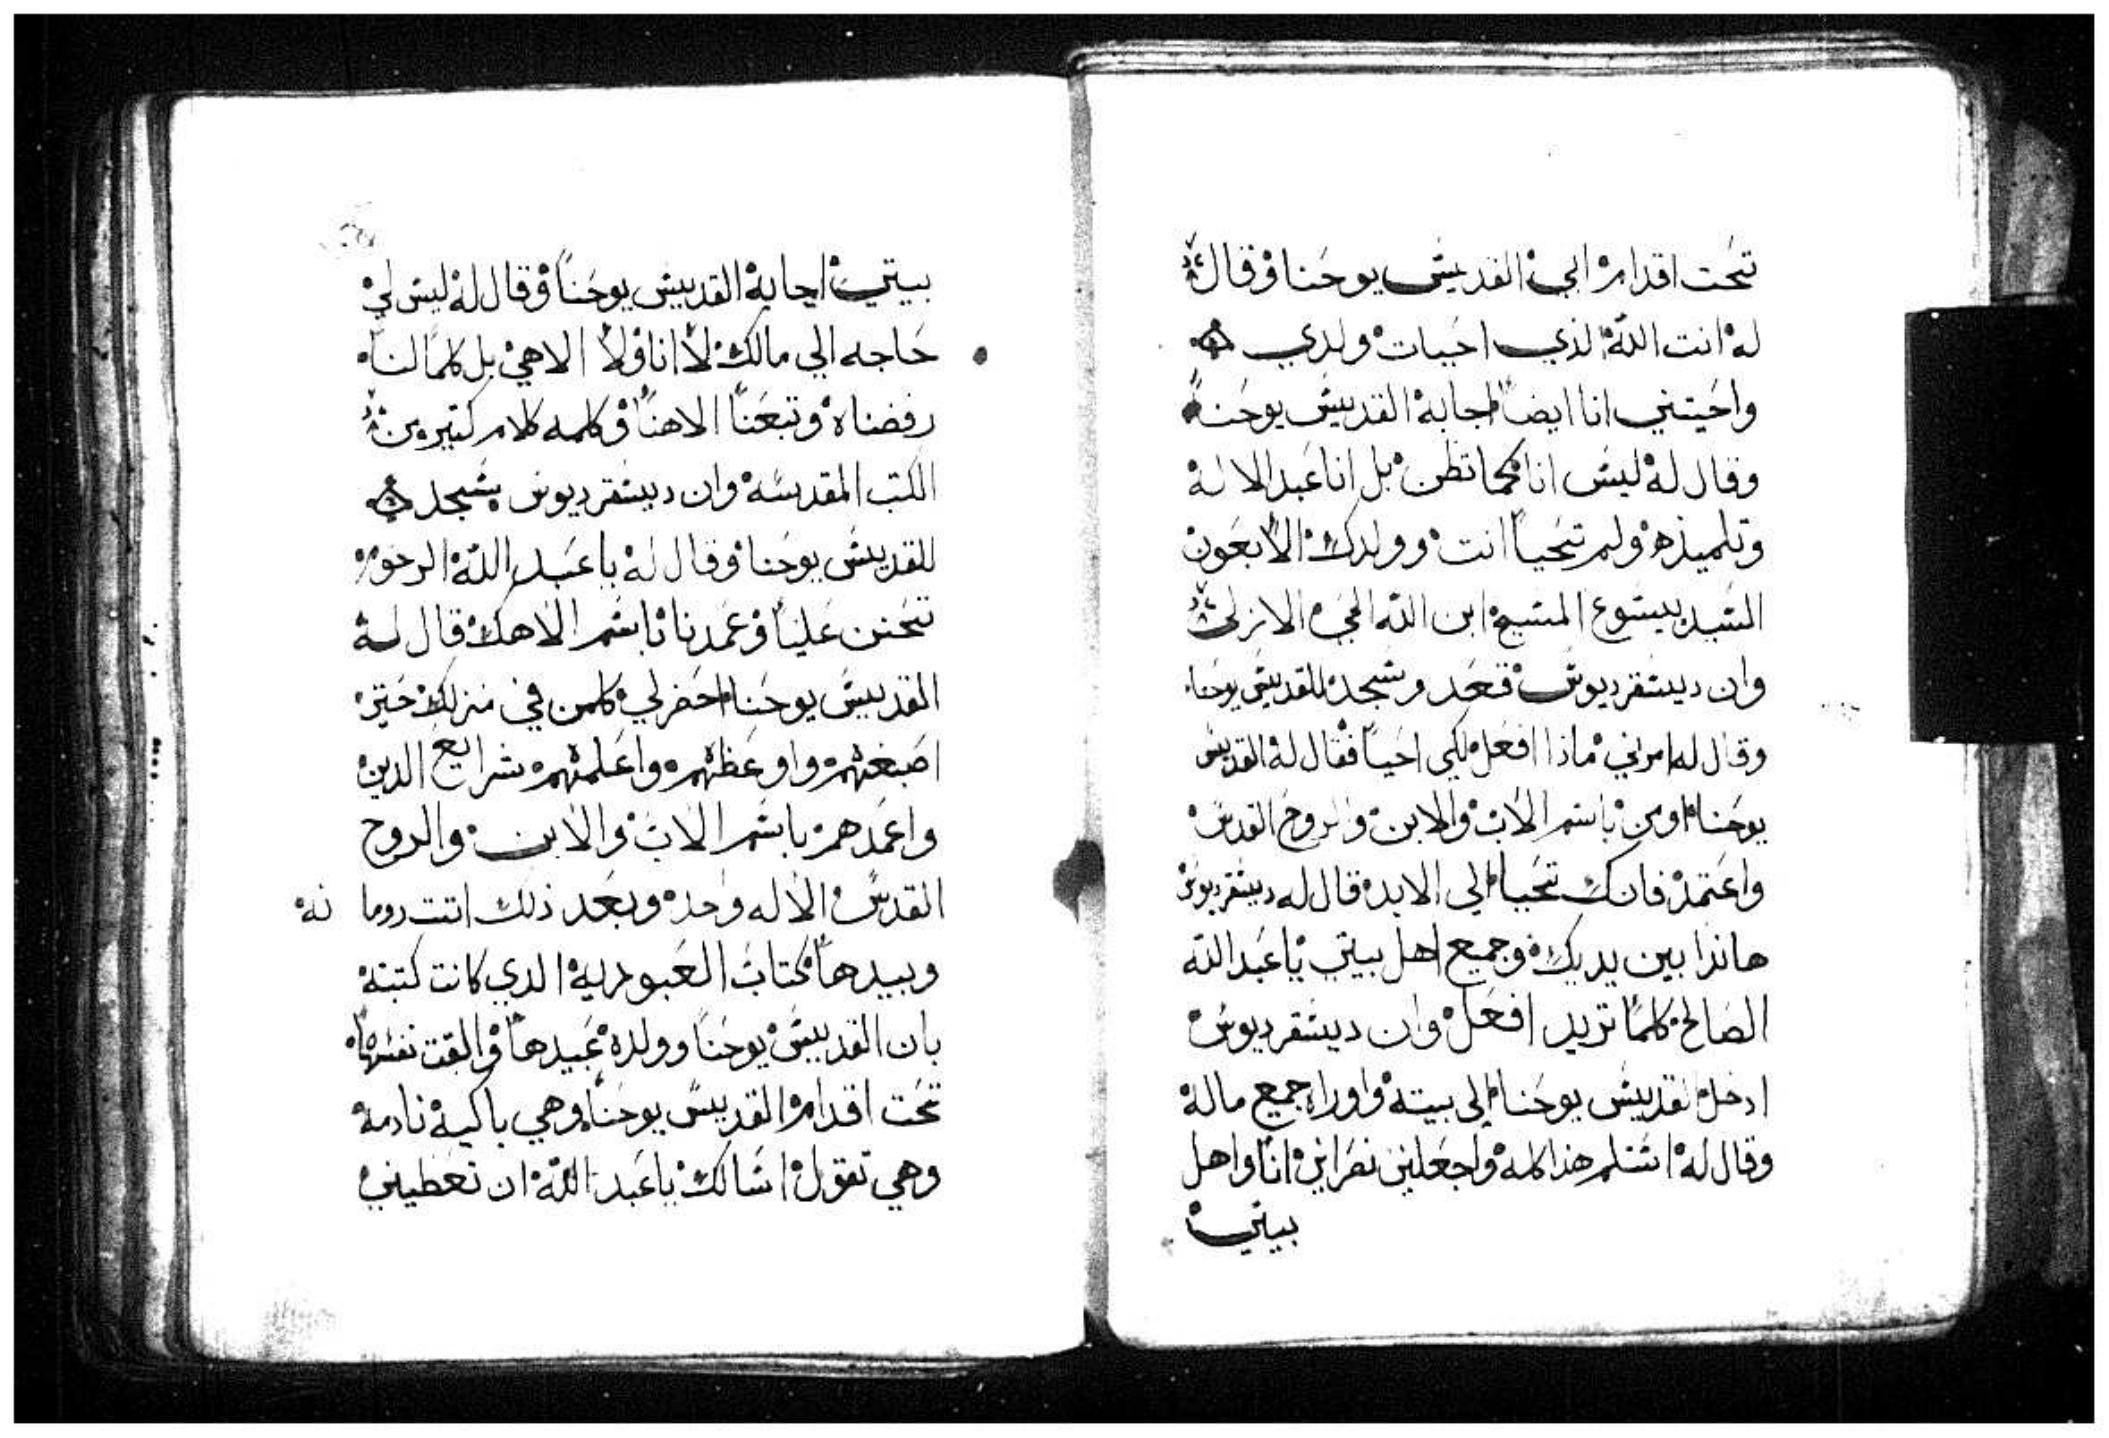 تحت اقدام ابي القديس يوحنا وقال
له انت الله الذي احيات ولدي
واحيتني انا ايضا اجابه القديس يوحنا
وقال له ليس انا كما تظن بل انا عبد الاله
وتلميذه ولم تحيا انت وولدك الا بعون
السيد يسوع المسيح ابن الله الحي الازلي
وان ديسقرديوس قعد وسجد للقديس يوحنا
وقال له امرني ماذا افعل لكي احيا فقال له القديس
يوحنا اومن باسم الاب والابن والروح القدس
واعتمد فانك تحيا الي الابد قال له ديسقرديوس
هاندا بين يديك وجميع اهل بيتي يا عبد الله
الصالح كلما تريد افعل وان ديسقرديوس
ادخل القديس يوحنا الي بيته واوراه جميع ماله
وقال له استلم هذا كله واجعلني نصراني انا واهل
بيتي
بيتي اجابه القديس يوحنا وقال له ليس لي
حاجه الي مالك لا انا ولا الاهي بل كلما لنا
رفضناه وتبعنا الاهنا وكلمه كلام كتير من
الكتب المقدسه وان ديسقرديوس سجد
للقديس يوحنا وقال له يا عبد الله الرحوم
تحنن علينا وعمدنا باسم الاهك قال له
القديس يوحنا احضر لي كلمن في منزلك حتي
اصبغتهم واوعظهم واعلمهم شرايع الدين
واعمدهم باسم الاب والابن والروح
القدس الاله واحد وبعد ذلك اتت روما نه
وبيدها كتاب العبوديه الدي كانت كتبته
بان القديس يوحنا وولده عبيدها والقت نفسها
تحت اقدام القديس يوحنا وهي باكيه نادمه
وهي تقول اسالك يا عبد الله ان تعطيني